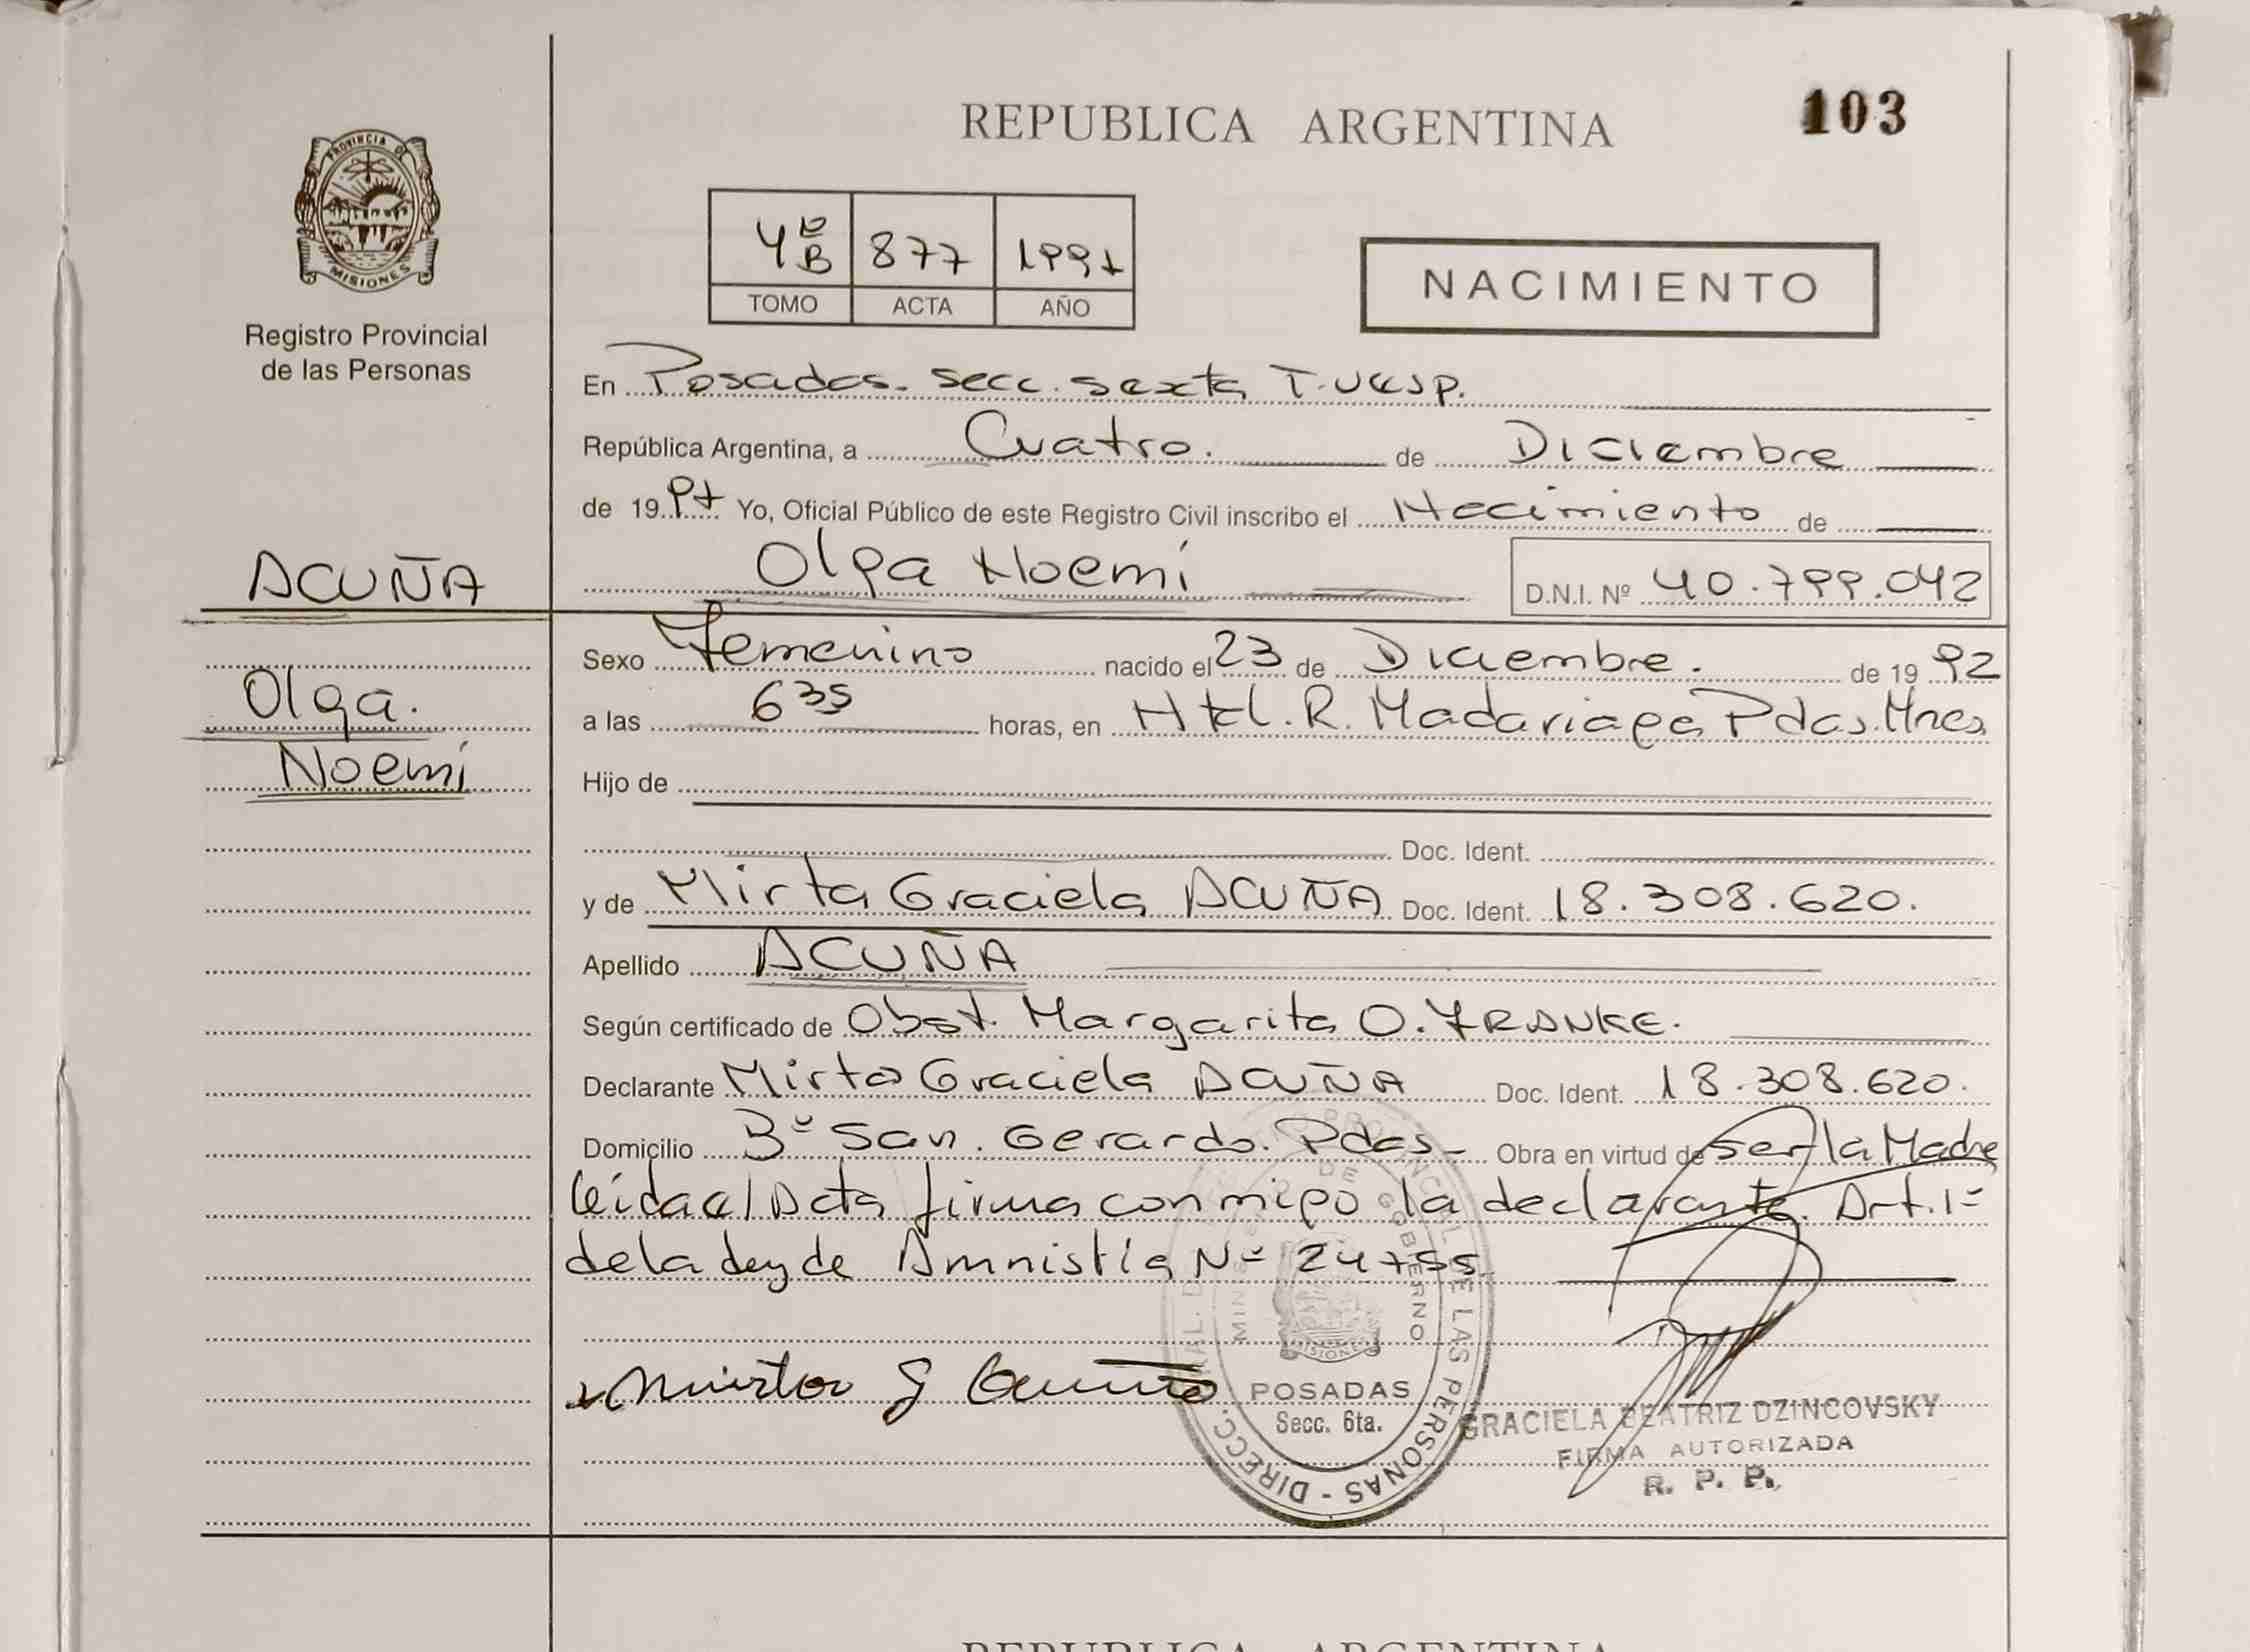 REPUBLICA ARGENTINA
103
PROVINCIA DE
MISIONES
Registro Provincial
de las Personas
4º B 877 1997
TOMO ACTA AÑO
NACIMIENTO
En Posadas. Secc. Sexta
República Argentina, a Cuatro. de Diciembre
de 1997 Yo, Oficial Público de este Registro Civil inscribo el Nacimiento de
Olga Noemí D.N.I. Nº 40.799.042
ACUÑA
Olga.
Noemí
Sexo Femenino nacido el 23 de Diciembre. de 1992
a las 6 35 horas, en Htal. R. Madariaga Pdas. Mnes
Hijo de
Doc. Ident.
y de Mirta Graciela ACUÑA Doc. Ident. 18.308.620.
Apellido ACUÑA
Según certificado de Obst. Margarita O. FRANKE.
Declarante Mirta Graciela ACUÑA Doc. Ident. 18.308.620.
Domicilio Bº San. Gerardo. Pdas- Obra en virtud de ser la Madre
leida el Acta firma conmigo la declarante. Art. 1º
de la Ley de Amnistía Nº 24755
Mirta G Acuña
POSADAS
Secc. 6ta.
GRACIELA BEATRIZ DZINCOVSKY
FIRMA AUTORIZADA
R. P. P.
REPUBLICA ARGENTINA